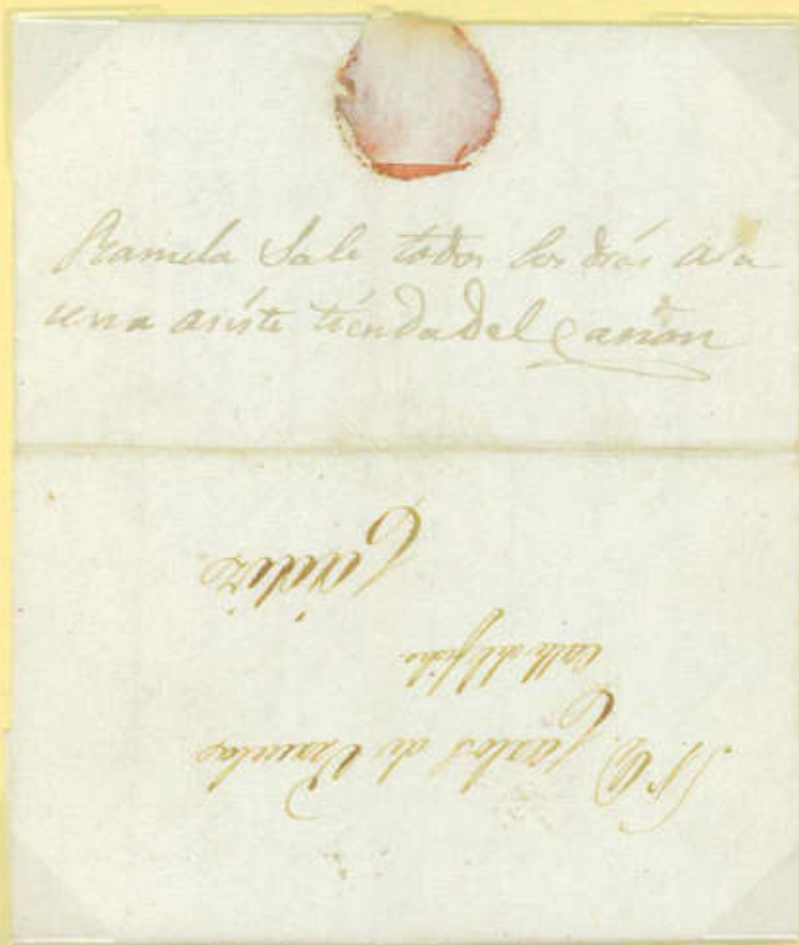 Ramela Sale todos los dias ala
una asiste tienda del Cañon
Sr. D. Carlos de
Calle del
Cádiz